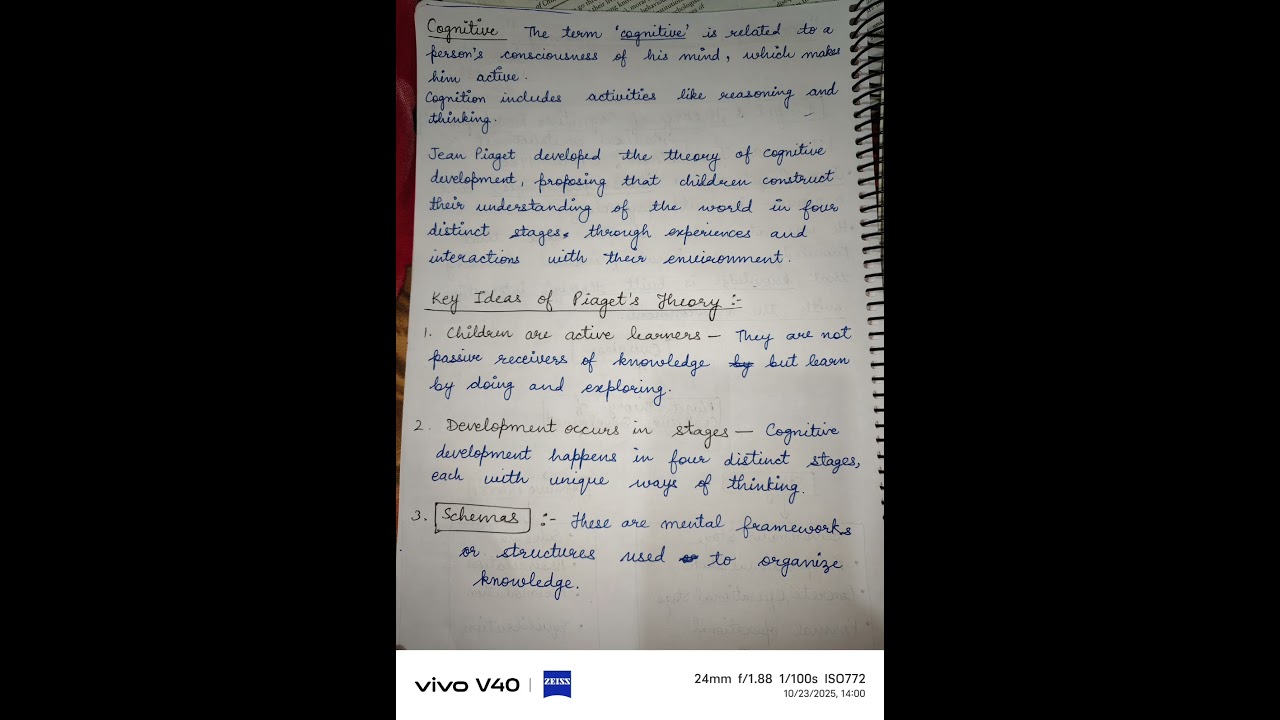 Cognitive The term 'cognitive' is related to a
person's consciousness of his mind, which makes
him active.
Cognition includes activities like reasoning and
thinking.
Jean Piaget developed the theory of cognitive
development, proposing that children construct
their understanding of the world in four
distinct stages. through experiences and
interactions with their environment.
Key Ideas of Piaget's Theory :-
1. Children are active learners — They are not
passive receivers of knowledge by but learn
by doing and exploring.
2. Development occurs in stages — Cognitive
development happens in four distinct stages,
each with unique ways of thinking.
3. Schemas :- These are mental frameworks
or structures used or to organize
knowledge.
vivo V40 | ZEISS
24mm f/1.88 1/100s ISO772
10/23/2025, 14:00